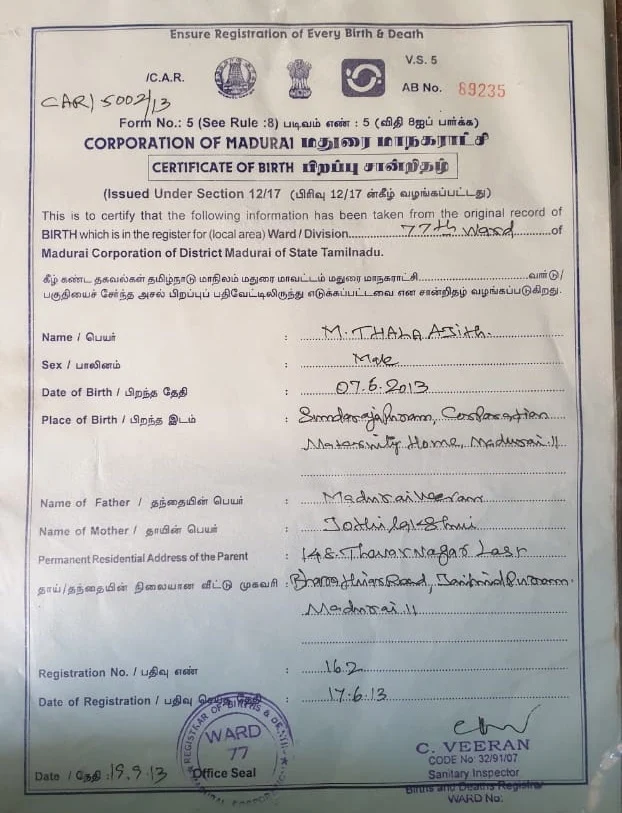 Ensure Registration of Every Birth & Death
V.S. 5
/C.A.R.
AB No. 89235
CAR/5002/13
Form No.: 5 (See Rule :8) படிவம் எண் : 5 (விதி 8ஐப் பார்க்க)
CORPORATION OF MADURAI மதுரை மாநகராட்சி
CERTIFICATE OF BIRTH பிறப்பு சான்றிதழ்
(Issued Under Section 12/17 (பிரிவு 12/17 ன்கீழ் வழங்கப்பட்டது)
This is to certify that the following information has been taken from the original record of
BIRTH which is in the register for (local area) Ward / Division 77th Ward of
Madurai Corporation of District Madurai of State Tamilnadu.
கீழ் கண்ட தகவல்கள் தமிழ்நாடு மாநிலம் மதுரை மாவட்டம் மதுரை மாநகராட்சி வார்டு/
பகுதியைச் சேர்ந்த அசல் பிறப்புப் பதிவேட்டிலிருந்து எடுக்கப்பட்டவை என சான்றிதழ் வழங்கப்படுகிறது.
Name / பெயர் : M. THALA AJith.
Sex / பாலினம் : Male
Date of Birth / பிறந்த தேதி : 07.6.2013
Place of Birth / பிறந்த இடம் : Sundarajapuram, Corporation
Maternity Home, Madurai.11
Name of Father / தந்தையின் பெயர் : Maduraiveeran
Name of Mother / தாயின் பெயர் : Jothilakshmi
Permanent Residential Address of the Parent : 148. Thevar Nagar
தாய்/தந்தையின் நிலையான வீட்டு முகவரி : Road,
Madurai 11
Registration No. / பதிவு எண் : 162
Date of Registration / பதிவு செய்த தேதி : 17.6.13
REGISTRAR OF BIRTHS & DEATH
WARD
77
C. VEERAN
CODE No: 32/91/07
Date / தேதி :19.9.13 Office Seal
Sanitary Inspector
Births and Deaths Registrar
WARD No: